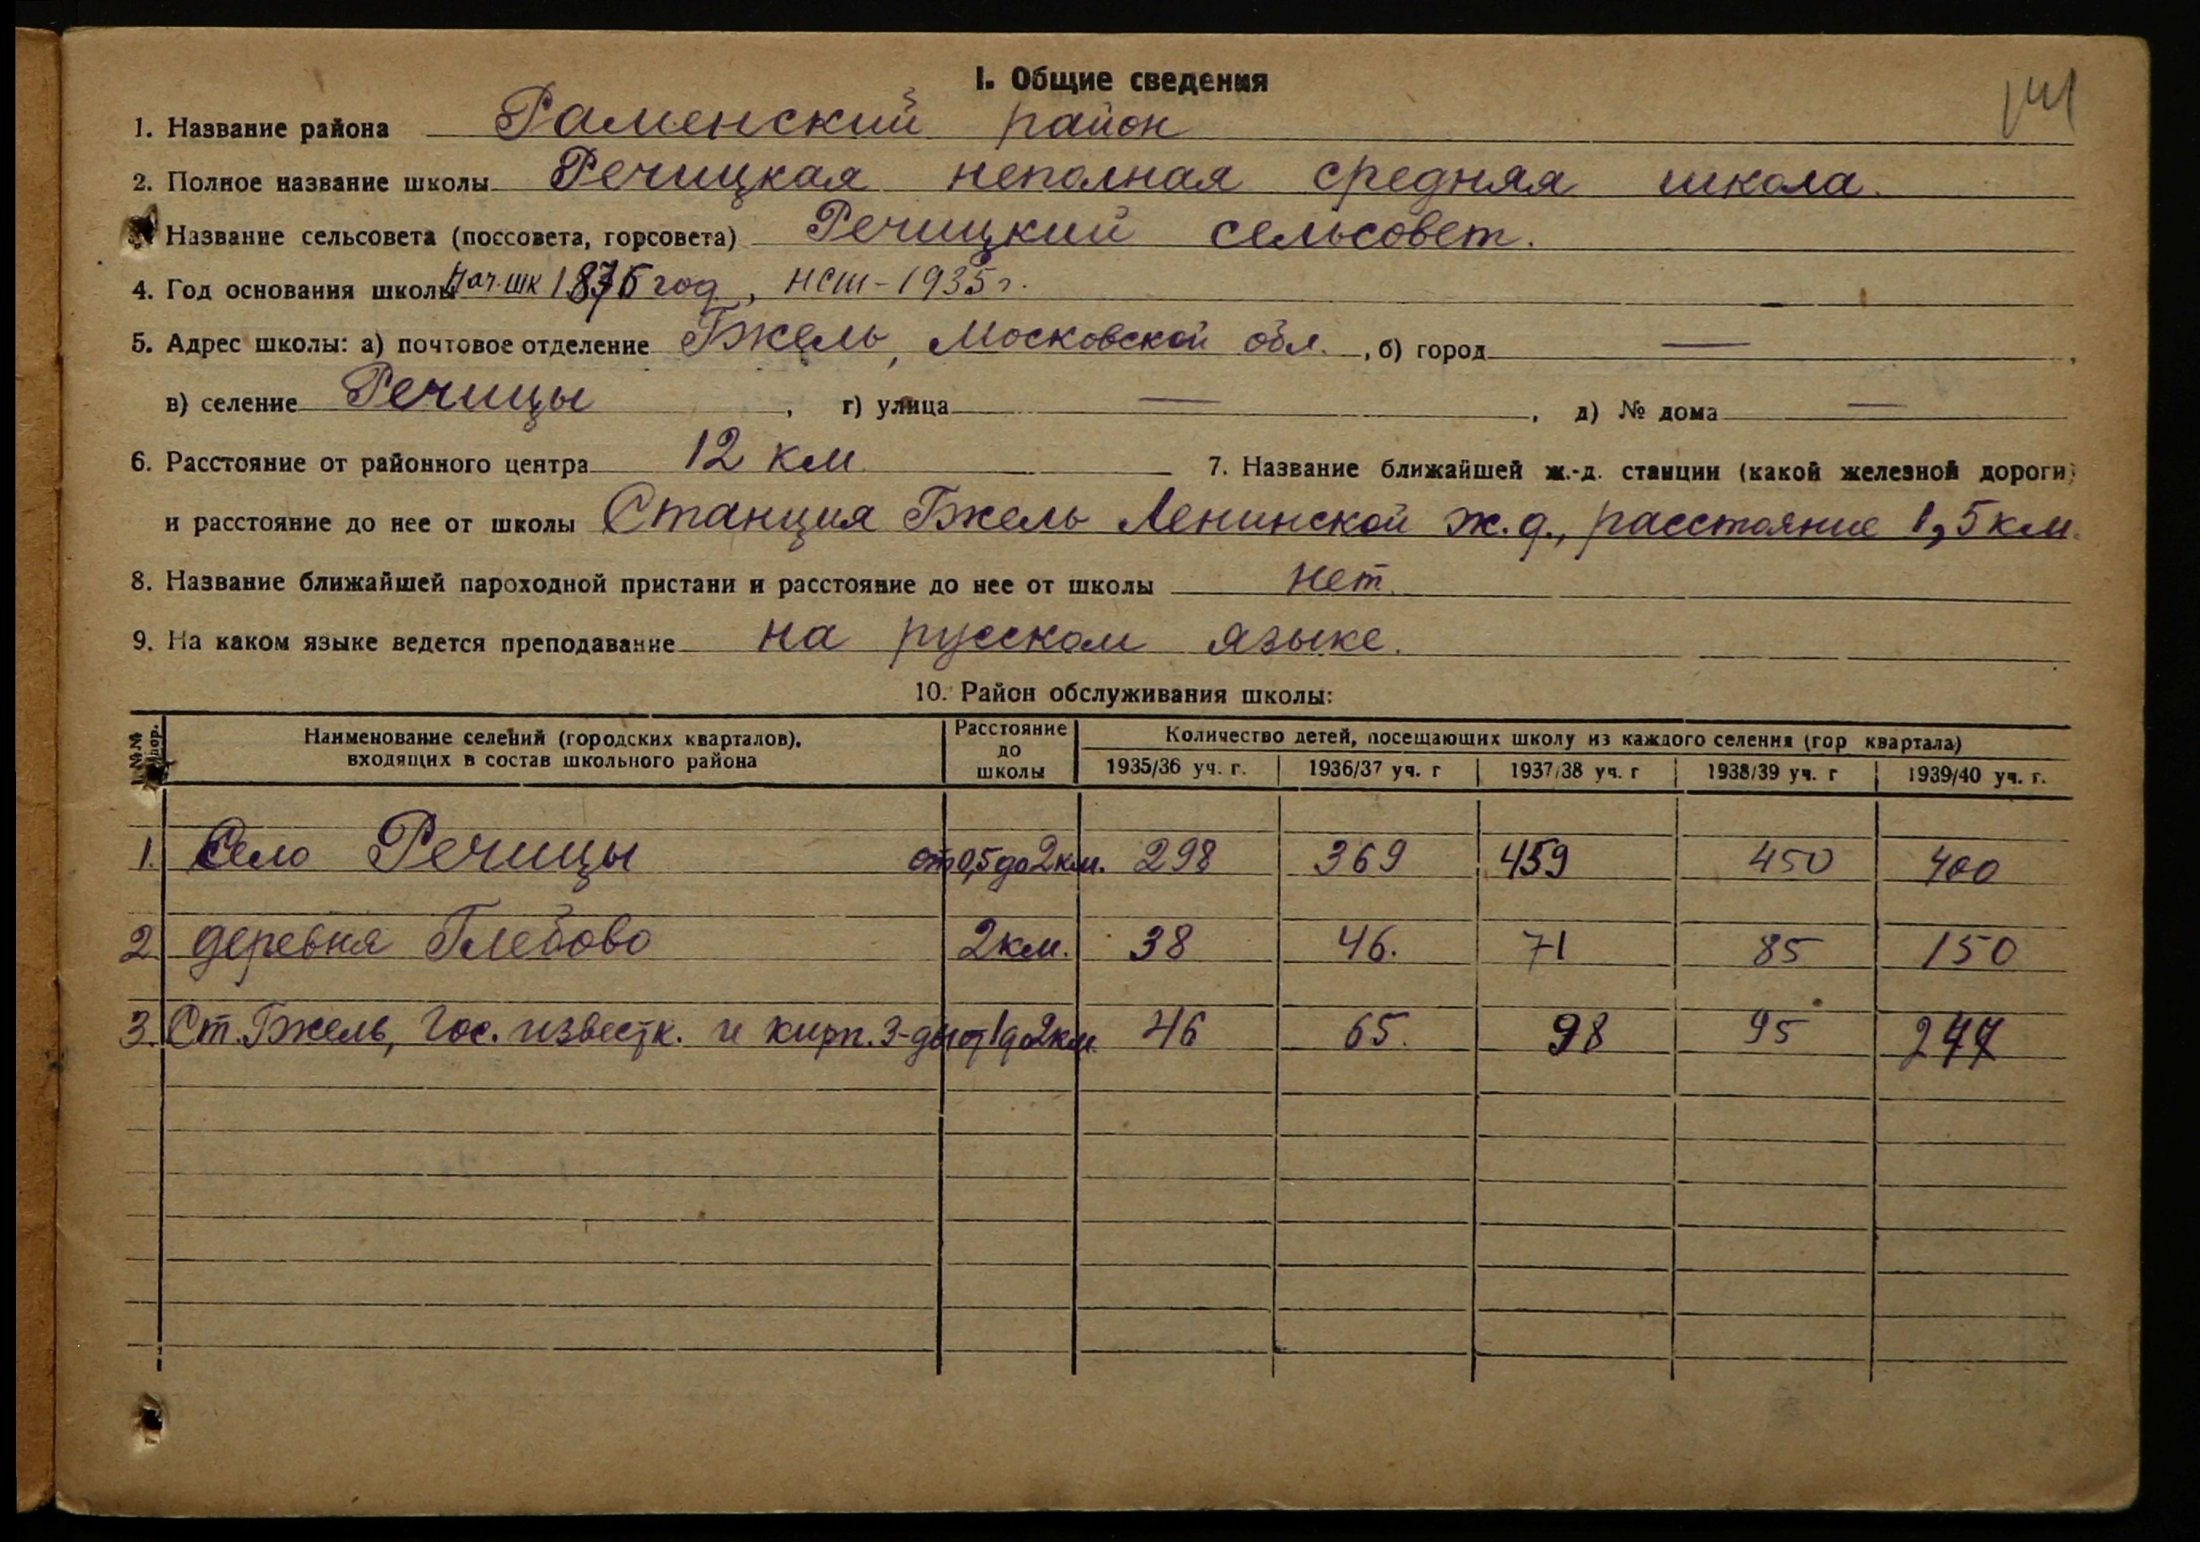 I. Общие сведения
141
1. Название района Раменский район
2. Полное название школы Речицкая неполная средняя школа.
Название сельсовета (поссовета, горсовета) Речицкий сельсовет.
4. Год основания школы Нач. шк 1876 год, НСШ - 1935 г.
5. Адрес школы: а) почтовое отделение Гжель, Московской обл., б) город —,
в) селение Речицы, г) улица —, д) № дома —
6. Расстояние от районного центра 12 км 7. Название ближайшей ж.-д. станции (какой железной дороги)
и расстояние до нее от школы Станция Гжель Ленинской ж.д., расстояние 1,5 км.
8. Название ближайшей пароходной пристани и расстояние до нее от школы нет.
9. На каком языке ведется преподавание на русском языке.
10. Район обслуживания школы:
№№ пор. Наименование селений (городских кварталов), входящих в состав школьного района Расстояние до школы Количество детей, посещающих школу из каждого селения (гор квартала)
1935/36 уч. г. 1936/37 уч. г 1937/38 уч. г 1938/39 уч. г 1939/40 уч. г.
1. Село Речицы от 0,5 до 2 км. 298 369 459 450 400
2 деревня Глебово 2 км. 38 46. 71 85 150
3. Ст. Гжель, Гос. известк. и кирп. з-ды от 1 до 2 км. 46 65. 98 95